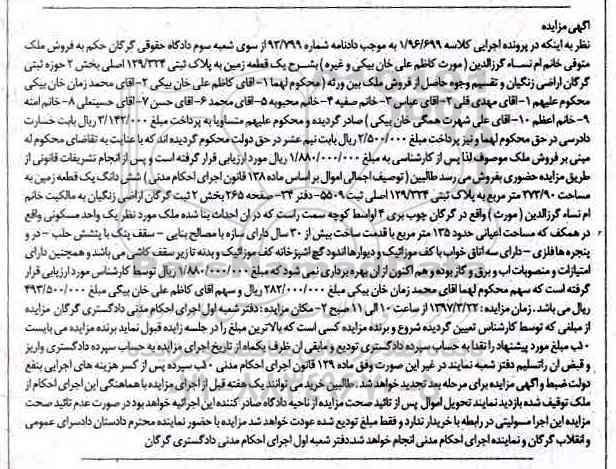 آگهی مزایده
نظر به اینکه در پرونده اجرایی کلاسه ۱/۹۶/۶۹۹ به موجب دادنامه شماره ۹۳/۷۹۹ از سوی شعبه سوم دادگاه حقوقی گرگان حکم به فروش ملک
متوفی خانم ام نساء گرزالدین (مورث کاظم علی خان بیکی و غیره) بشرح یک قطعه زمین به پلاک ثبتی ۱۲۹/۳۳۴ اصلی بخش ۲ حوزه ثبتی
گرگان اراضی زنگیان و تقسیم وجوه حاصل از فروش ملک بین ورثه (محکوم لهما ۱- آقای کاظم علی خان بیکی ۲- آقای محمد زمان خان بیکی
محکوم علیهم ۱- آقای مهدی قلی ۲- آقای عباس ۳- خانم صفیه ۴- خانم محبوبه ۵- آقای محمد ۶- آقای حسن ۷- آقای حسینعلی ۸- خانم امنه
۹- خانم اعظم ۱۰- آقای علی شهرت همگی خان بیکی) صادر گردیده و محکوم علیهم متساویا به پرداخت مبلغ ۳/۱۴۲/۰۰۰ ریال بابت خسارت
دادرسی در حق محکوم لهما و نیز پرداخت مبلغ ۲/۵۰۰/۰۰۰ ریال بابت نیم عشر در حق دولت محکوم گردیده اند که با عنایت به تقاضای محکوم له
مبنی بر فروش ملک موصوف لذا پس از کارشناسی به مبلغ ۱/۸۸۰/۰۰۰/۰۰۰ ریال مورد ارزیابی قرار گرفته است و پس از انجام تشریفات قانونی از
طریق مزایده حضوری بفروش می رسد طالبین (توصیف اجمالی اموال بر اساس ماده ۱۳۸ قانون اجرای احکام مدنی) شش دانگ یک قطعه زمین به
مساحت ۳۷۳/۹۰ متر مربع به پلاک ثبتی ۱۲۹/۳۳۴ اصلی ثبت ۵۵۰۹- دفتر ۳۴- صفحه ۲۶۵ بخش ۲ ثبت گرگان اراضی زنگیان به مالکیت خانم
ام نساء گرزالدین (مورث) واقع در گرگان چوب بری ۴ اواسط کوچه سمت راست که در ان احداث بنا شده ملک مورد نظر یک واحد مسکونی واقع
در همکف که مساحت اعیانی حدود ۱۳۵ متر مربع با قدمت ساخت بیش از ۳۰ سال دارای سازه با مصالح بنایی - سقف پتک با پشش حلب - در و
پنجره ها فلزی - دارای سه اتاق خواب با کف موزائیک و دیوارها اندود گچ اشپزخانه کف موزائیک و بدنه تا زیر سقف کاشی می باشد و همچنین دارای
امتیازات و منصوبات اب و برق و گاز بوده و هم اکنون از ان بهره برداری نمی شود که مبلغ ۱/۸۸۰/۰۰۰/۰۰۰ ریال توسط کارشناس مورد ارزیابی قرار
گرفته است که سهم محکوم لهما آقای محمد زمان خان بیکی مبلغ ۲۸۲/۰۰۰/۰۰۰ ریال و سهم آقای کاظم علی خان بیکی مبلغ ۴۹۳/۵۰۰/۰۰۰
ریال می باشد. زمان مزایده: ۱۳۹۷/۳/۲۳ از ساعت ۱۰ الی ۱۱ صبح ۲- مکان مزایده: دفتر شعبه اول اجرای احکام مدنی دادگستری گرگان مزایده
از مبلغی که توسط کارشناس تعیین گردیده شروع و برنده مزایده کسی است که بالاترین مبلغ را در جلسه زاید قبول نماید برنده مزایده می بایست
۱۰٪ مبلغ مورد پیشنهاد را نقدا به حساب سپرده دادگستری تودیع و مابقی ان ظرف یکماه از تاریخ اجرای مزایده به حساب سپرده دادگستری واریز
و قبض ان را تسلیم دفتر شعبه نمایند در غیر این صورت وفق ماده ۱۲۹ قانون اجرای احکام مدنی ۱۰٪ سپرده پس از کسر هزینه های اجرایی بنفع
دولت ضبط و آگهی مزایده برای مرحله بعد تجدید خواهد شد. طالبین خرید می توانند یک هفته قبل از اجرای مزایده با هماهنگی این اجرای احکام از
ملک توقیف شده بازدید نمایند تحویل اموال پس از تائید صحت مزایده از ناحیه دادگاه صادر کننده این اجرائیه خواهد بود در صورت عدم تائید صحت
مزایده این اجرا مسولیتی در رابطه با خریدار ندارد و فقط مبلغ تودیع شده عودت خواهد شد مزایده با حضور نماینده محترم دادستان دادسرای عمومی
و انقلاب گرگان و نماینده اجرای احکام مدنی انجام خواهد شد. دفتر شعبه اول اجرای احکام مدنی دادگستری گرگان